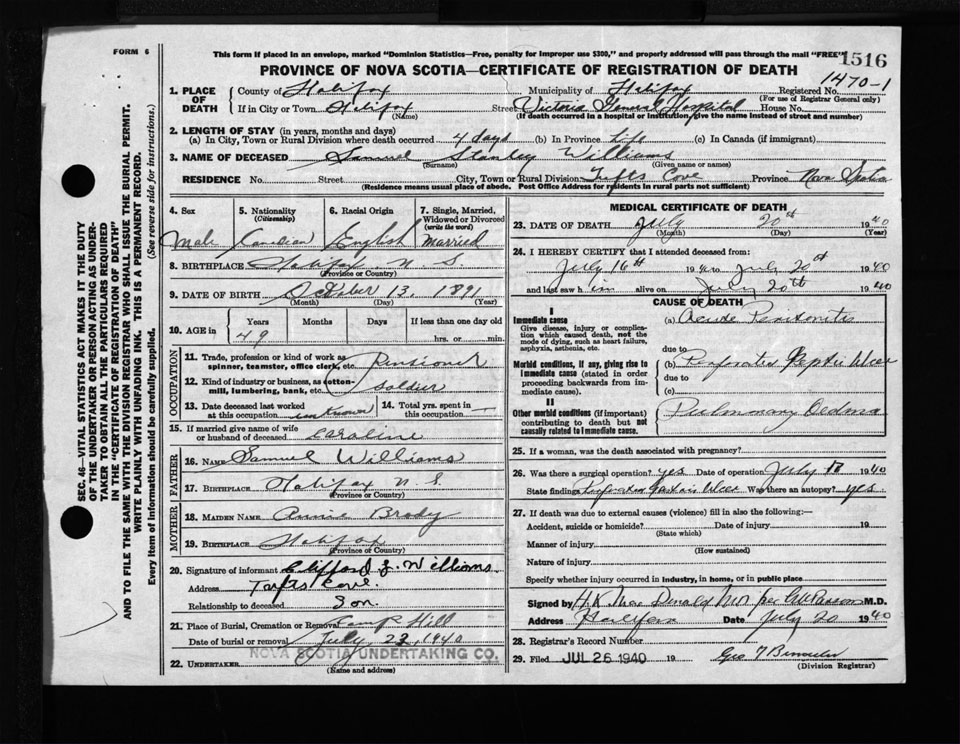 FORM 6
This form if placed in an envelope, marked "Dominion Statistics—Free, penalty for improper use $300," and properly addressed will pass through the mail "FREE"
1516
PROVINCE OF NOVA SCOTIA—CERTIFICATE OF REGISTRATION OF DEATH
1470-1
1. PLACE OF DEATH
County of Halifax Municipality of Halifax Registered No.
(For use of Registrar General only)
If in City or Town Halifax Street Victoria General Hospital House No.
(Name) (If death occurred in a hospital or institution, give the name instead of street and number)
2. LENGTH OF STAY (in years, months and days)
(a) In City, Town or Rural Division where death occurred 4 days (b) In Province Life (c) In Canada (if immigrant)
3. NAME OF DECEASED Samuel Stanley Williams
(Surname) (Given name or names)
RESIDENCE No. Street City, Town or Rural Division Tufts Cove Province Nova Scotia
(Residence means usual place of abode. Post Office Address for residents in rural parts not sufficient)
4. Sex 5. Nationality (Citizenship) 6. Racial Origin 7. Single, Married, Widowed or Divorced (write the word)
Male Canadian English Married
8. BIRTHPLACE Halifax N. S.
(Province or Country)
9. DATE OF BIRTH October 13, 1891
(Month) (Day) (Year)
10. AGE in Years Months Days If less than one day old
49 hrs. or min.
OCCUPATION
11. Trade, profession or kind of work as spinner, teamster, office clerk, etc. Pensioner
12. Kind of industry or business, as cotton-mill, lumbering, bank, etc. Soldier
13. Date deceased last worked at this occupation unknown 14. Total yrs. spent in this occupation —
15. If married give name of wife or husband of deceased Caroline
FATHER
16. NAME Samuel Williams
17. BIRTHPLACE Halifax N. S.
(Province or Country)
MOTHER
18. MAIDEN NAME Annie Brody
19. BIRTHPLACE Halifax
(Province or Country)
20. Signature of informant Clifford J. Williams
Address Tufts Cove.
Relationship to deceased Son.
21. Place of Burial, Cremation or Removal Camp Hill
Date of burial or removal July 22, 1940
NOVA SCOTIA UNDERTAKING CO.
22. UNDERTAKER
(Name and address)
MEDICAL CERTIFICATE OF DEATH
23. DATE OF DEATH July 20th 1940
(Month) (Day) (Year)
24. I HEREBY CERTIFY that I attended deceased from:
July 16th 1940 to July 20th 1940
and last saw him alive on July 20th 1940
CAUSE OF DEATH
I
Immediate cause
Give disease, injury or complication which caused death, not the mode of dying, such as heart failure, asphyxia, asthenia, etc.
(a) Acute Peritonitis
due to
Morbid conditions, if any, giving rise to immediate cause (stated in order proceeding backwards from immediate).
(b) Perforated Peptic Ulcer
due to
(c)
II
Other morbid conditions (if important) contributing to death but not causally related to immediate cause.
Pulmonary Oedema
25. If a woman, was the death associated with pregnancy?
26. Was there a surgical operation? yes Date of operation July 1940
State findings Was there an autopsy? yes
27. If death was due to external causes (violence) fill in also the following:—
Accident, suicide or homicide? Date of injury 19
(State which)
Manner of injury
(How sustained)
Nature of injury
Specify whether injury occurred in industry, in home, or in public place
Signed by H.K. MacDonald M.D. per M.D.
Address Halifax Date July 20 1940
28. Registrar's Record Number
29. Filed JUL 26 1940 19 Geo
(Division Registrar)
SEC. 46—VITAL STATISTICS ACT MAKES IT THE DUTY
OF THE UNDERTAKER OR PERSON ACTING AS UNDERTAKER TO OBTAIN ALL THE PARTICULARS REQUIRED
IN THE "CERTIFICATE OF REGISTRATION OF DEATH"
AND TO FILE THE SAME WITH THE DIVISION REGISTRAR WHO SHALL ISSUE THE BURIAL PERMIT.
WRITE PLAINLY WITH UNFADING INK. THIS IS A PERMANENT RECORD.
Every item of information should be carefully supplied. (See reverse side for instructions.)